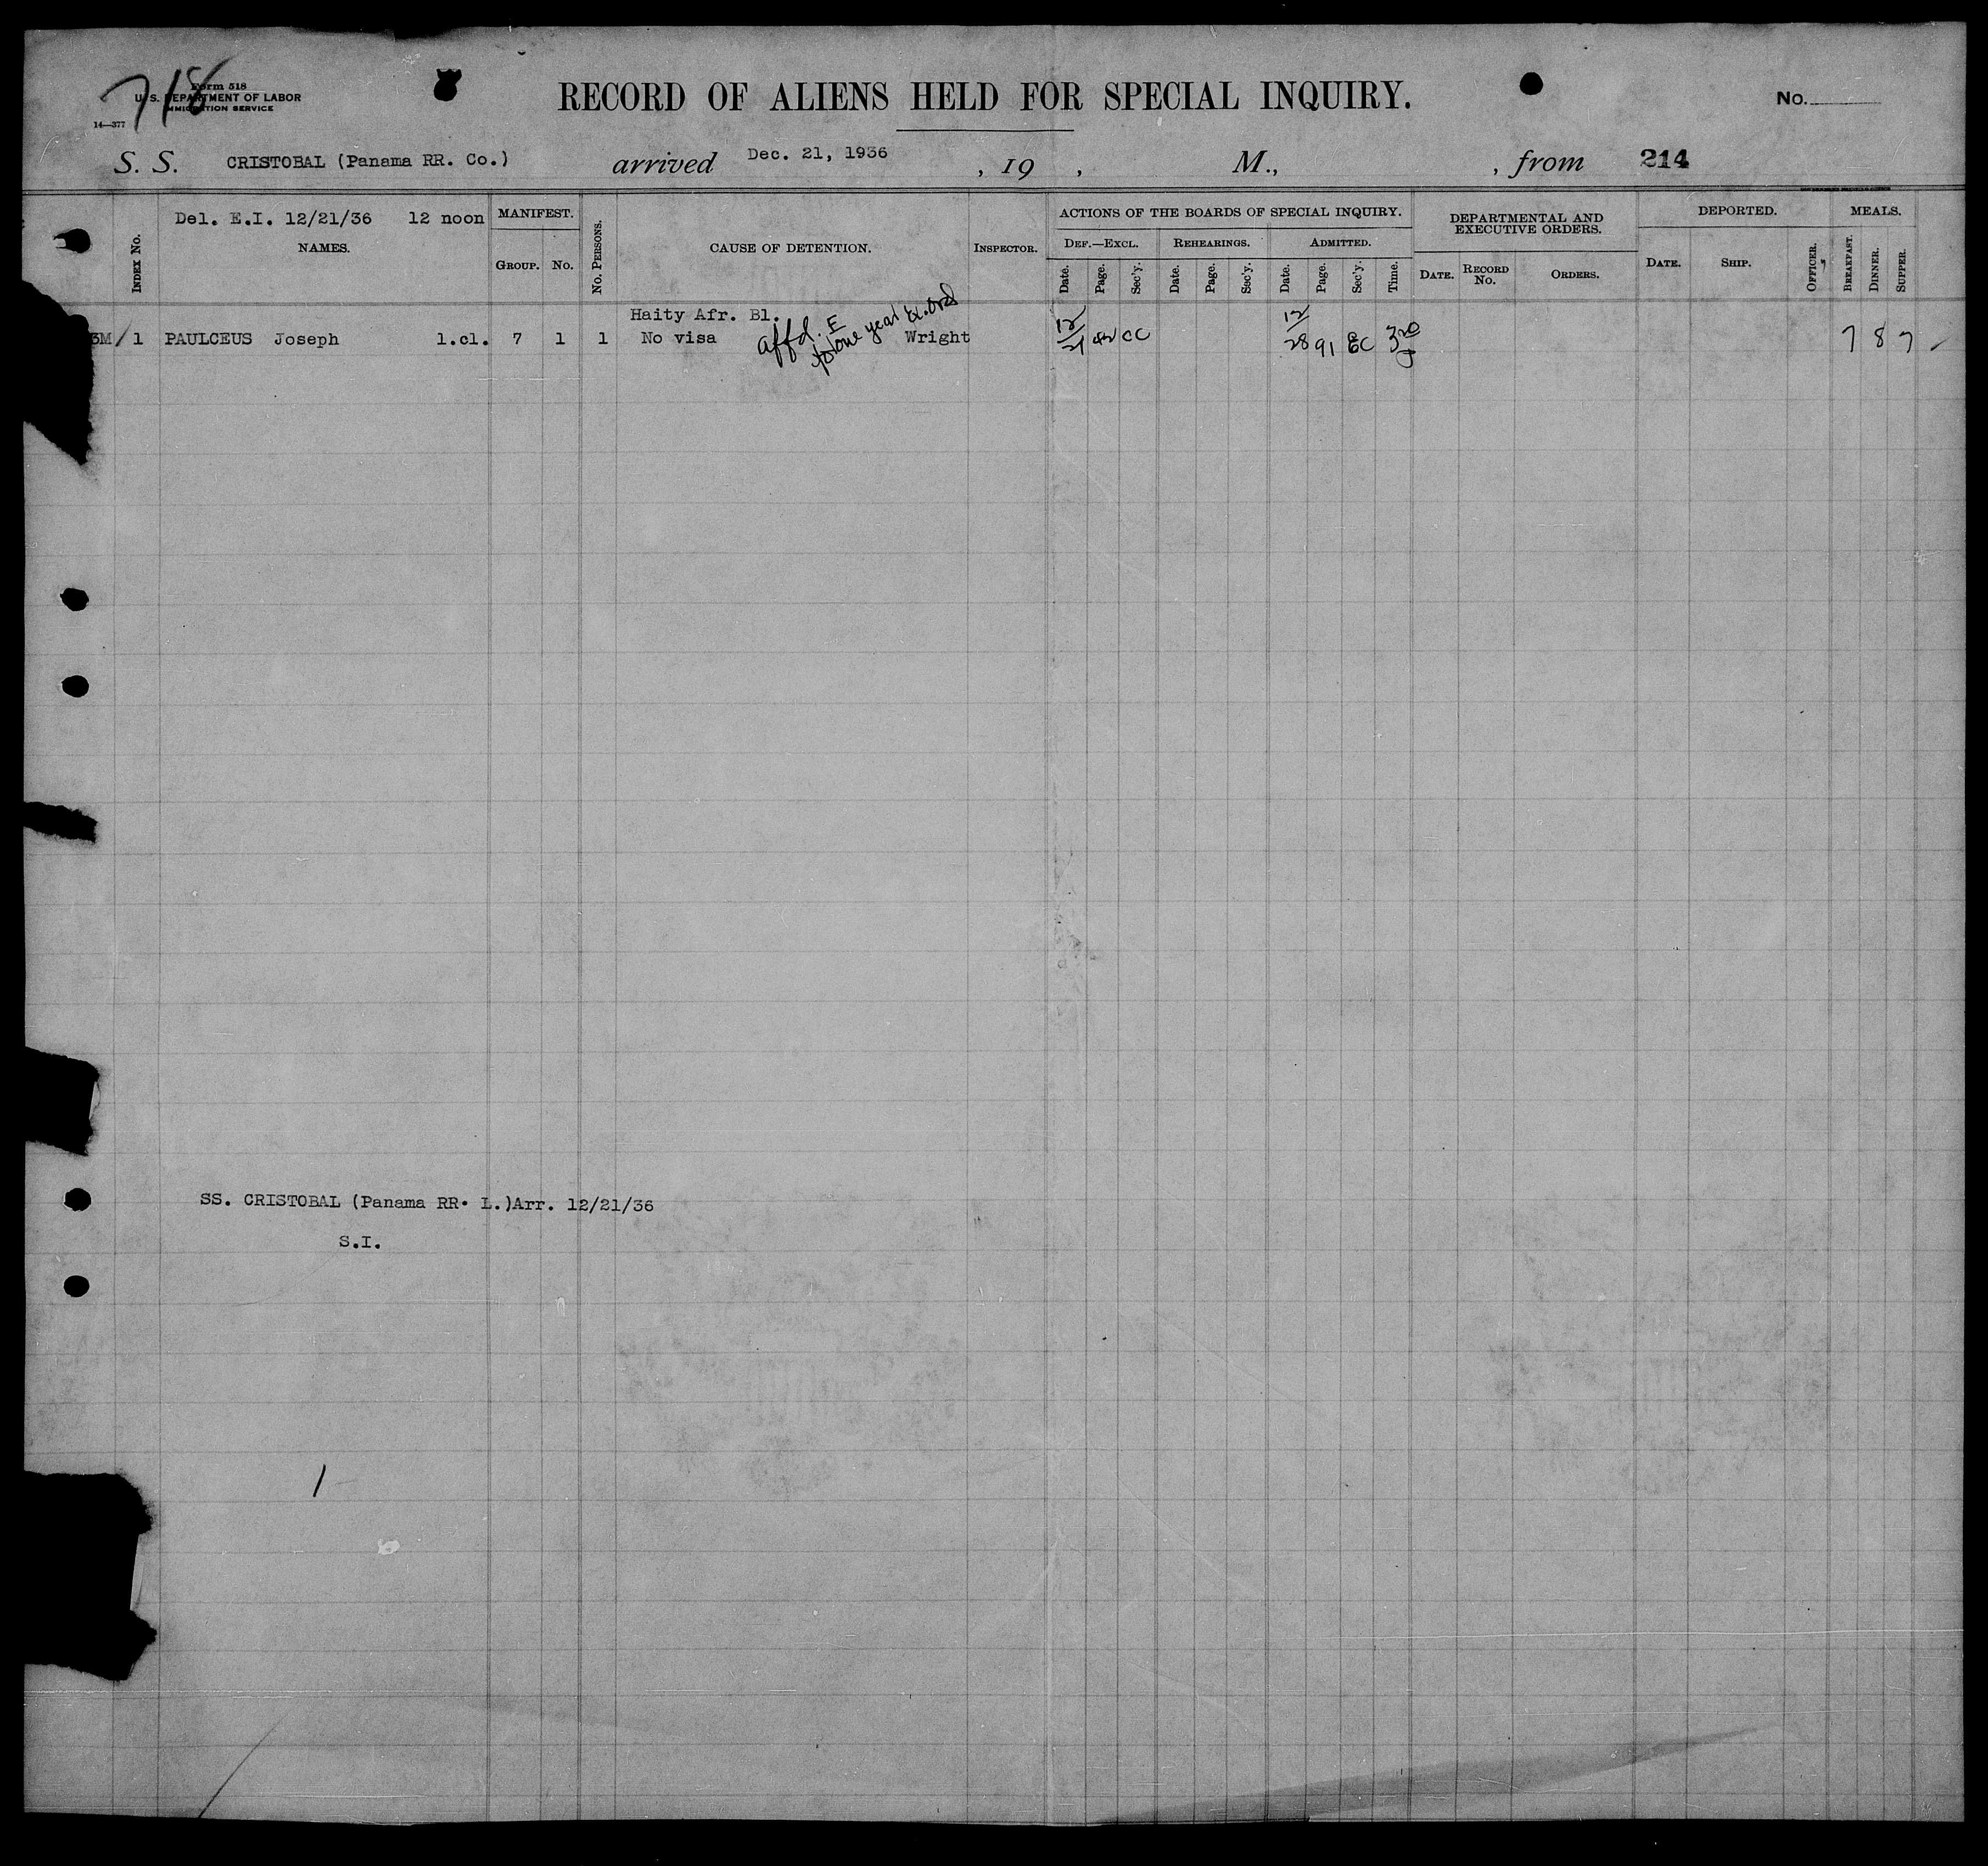 718
Form 518
U. S. DEPARTMENT OF LABOR
IMMIGRATION SERVICE
14—377
RECORD OF ALIENS HELD FOR SPECIAL INQUIRY.
No.
S. S. CRISTOBAL (Panama RR. Co.) arrived Dec. 21, 1936 , 19 , M., , from 214
Del. E.I. 12/21/36 12 noon
INDEX No.
NAMES.
MANIFEST.
GROUP. No.
No. PERSONS.
CAUSE OF DETENTION.
INSPECTOR.
ACTIONS OF THE BOARDS OF SPECIAL INQUIRY.
DEF.—EXCL. REHEARINGS. ADMITTED.
Date. Page. Sec'y. Date. Page. Sec'y. Date. Page. Sec'y. Time.
DEPARTMENTAL AND
EXECUTIVE ORDERS.
DATE. RECORD No. ORDERS.
DEPORTED.
DATE. SHIP. OFFICER.
MEALS.
BREAKFAST. DINNER. SUPPER.
Haity Afr. Bl.
3M/ 1 PAULCEUS Joseph 1.cl. 7 1 1 No visa affd. E one year Ex. Ord Wright 12/21 42 CC 12/28 91 EC 3 20 7 8 7
SS. CRISTOBAL (Panama RR. L.)Arr. 12/21/36
S.I.
1